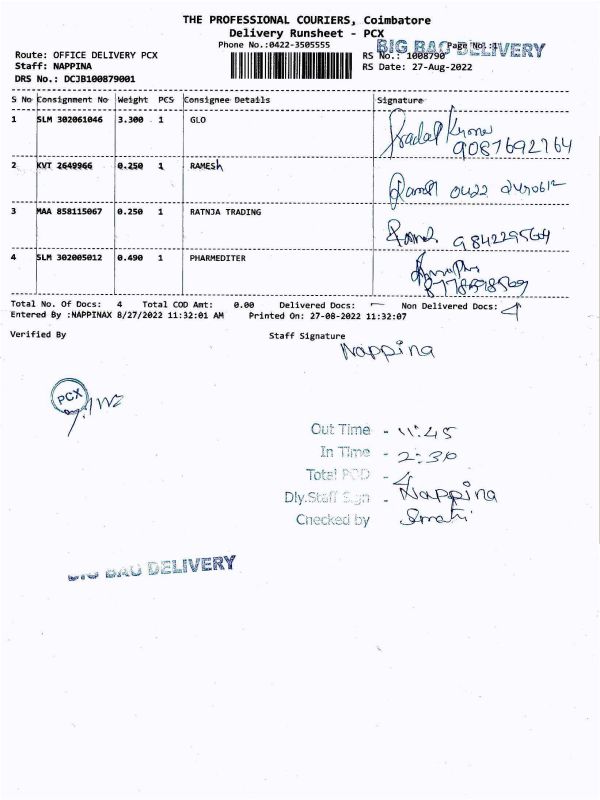 THE PROFESSIONAL COURIERS, Coimbatore
Delivery Runsheet - PCX
Phone No.:0422-3505555
BIG BAG DELIVERY
Page No.:1
Route: OFFICE DELIVERY PCX
RS No.: 1008790
Staff: NAPPINA
RS Date: 27-Aug-2022
DRS No.: DCJB100879001
S No Consignment No Weight PCS Consignee Details Signature
1 SLM 302061046 3.300 1 GLO
9087692764
2 KVT 2649966 0.250 1 RAMESh
0422
3 MAA 858115067 0.250 1 RATNJA TRADING
4 SLM 302005012 0.490 1 PHARMEDITER
Total No. Of Docs: 4 Total COD Amt: 0.00 Delivered Docs: — Non Delivered Docs: 4
Entered By :NAPPINAX 8/27/2022 11:32:01 AM Printed On: 27-08-2022 11:32:07
Verified By Staff Signature
Nappina
PCX
Out Time - 11:45
In Time - 2:30
Total POD - 4
Dly.Staff Sign - Nappina
Checked by
BIG BAG DELIVERY